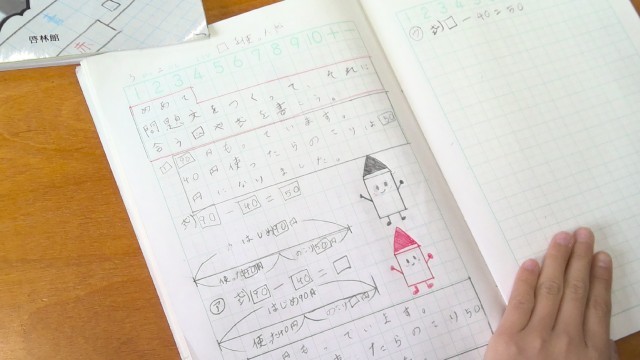 啓林館
1 2 3 4 5 6 7 8 9 10 + -
めあて
問題文をつくって、それに
合う図や式を書こう。
① 90円もっています。
40円使ったらのこりは50
円になりました。
式 90 - 40 = 50
はじめ90円
使った40円 のこり50円
㋐ 式 90 - 40 = □
はじめ90円
使った40円 のこり□円
円もっています。
ったらのこり50
㋑ 式 □ - 40 = 50